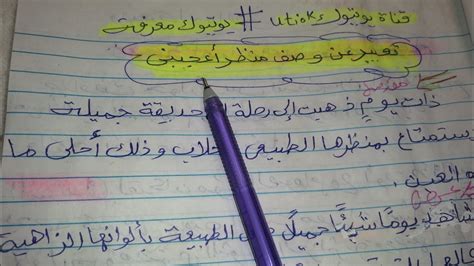 قناة يوتيوك utiok # يوتيوك معرفتك
تعبير عن وصف منظر أعجبني
ذات يوم ذهبت إلى رحلة حديقة جميلة
ستمتاع بمنظرها الطبيعي خلاب وذلك أحلى ما
العين.
شاهد يوما شيئا جميلا الطبيعة بألوانها الزاهية